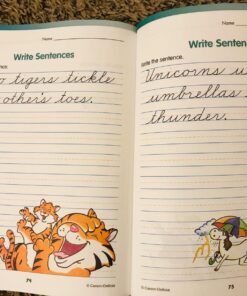 Name
Write Sentences
tigers tickle
other's toes.
74
© Carson-Dellosa
Name
Write Sentences
the sentence.
Unicorns
umbrellas
thunder.
© Carson-Dellosa
75